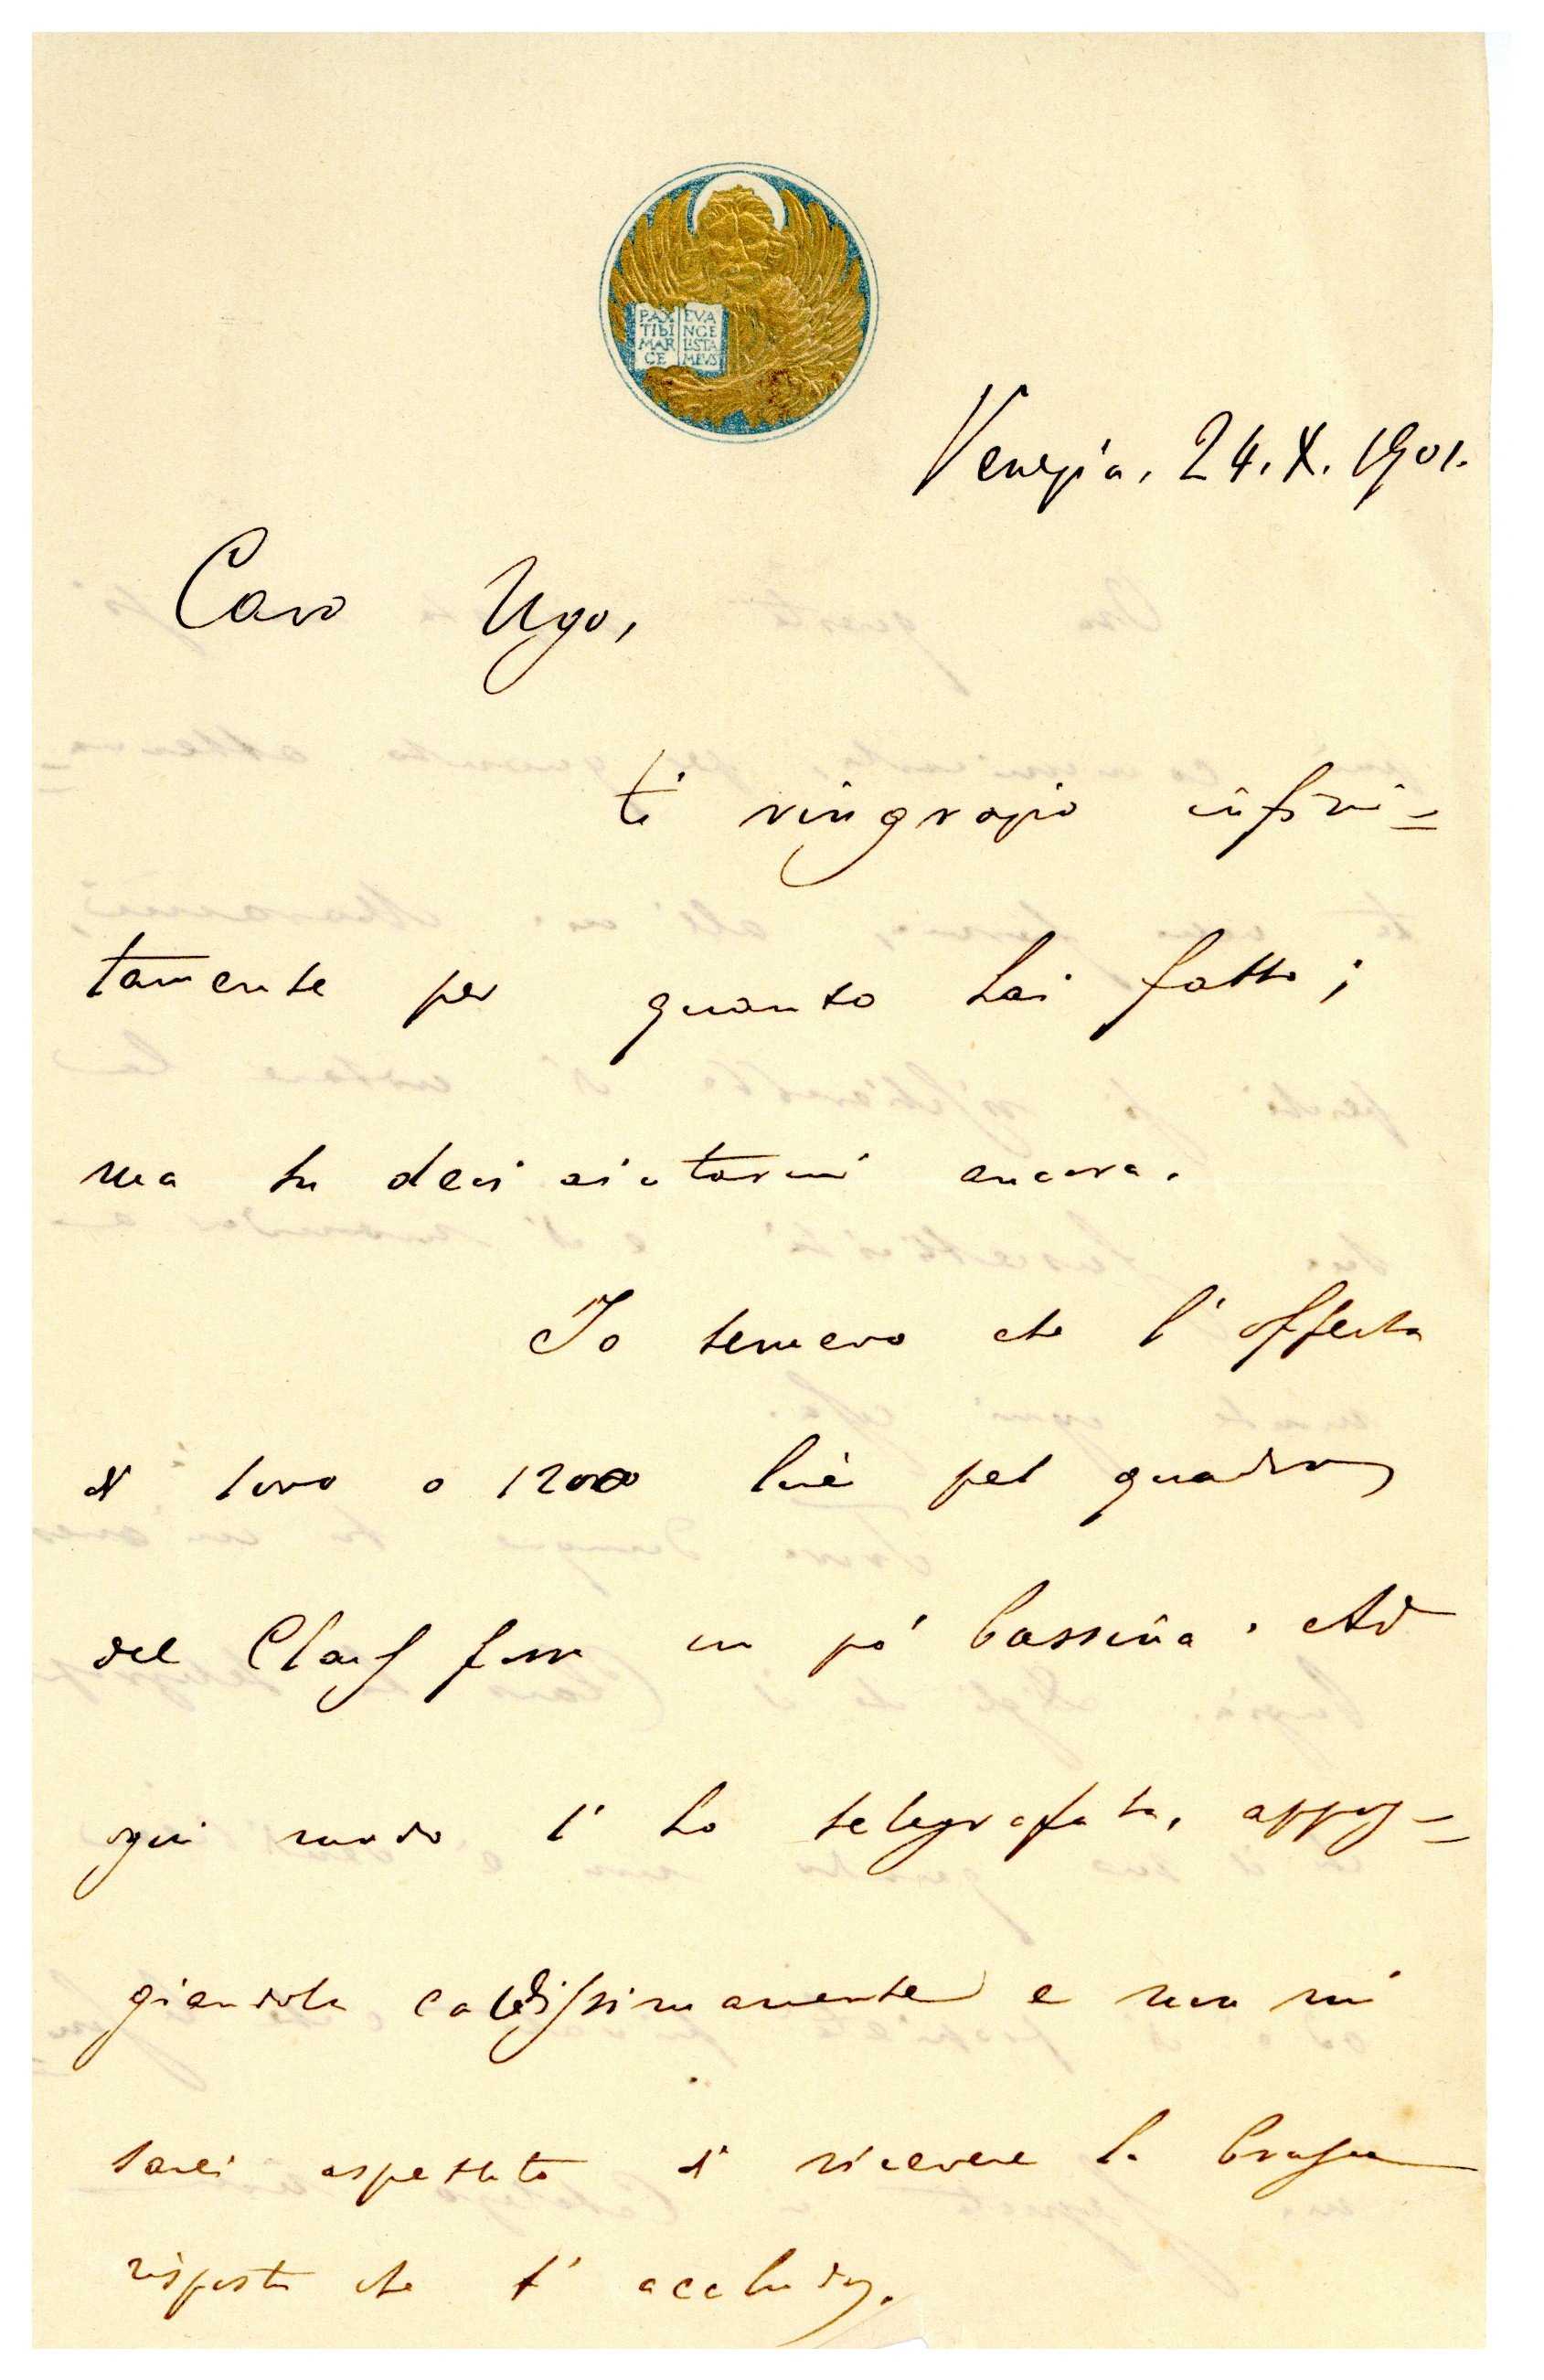 PAX TIBI MARCE EVANGELISTA MEVS
Venezia, 24. X. 1901.
Caro Ugo,
ti ringrazio infini=
tamente per quanto hai fatto;
ma tu devi aiutarmi ancora.
Io temevo che l'offerta
di 1000 o 1200 lire pel quadro
del Claus fosse un po' bassina. Ad
ogni modo l'ho telegrafata, appog=
giandola caldissimamente e non mi
sarei aspettato di ricevere la brusca
risposta che t'accludo.